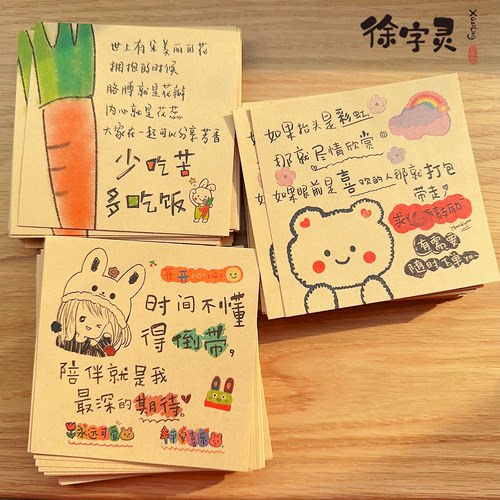 徐字灵
世上有朵美丽的花
拥抱的时候
胳膊就是花瓣
内心就是花蕊
大家在一起可以分享芳香
少吃苦
多吃饭
如果抬头是彩虹
那就尽情欣赏
如果眼前是喜欢的人那就打包
带走
有需要
随时下单yo~
开开心心
时间不懂
得倒带,
陪伴就是我
最深的期待
永远可爱
平安喜乐